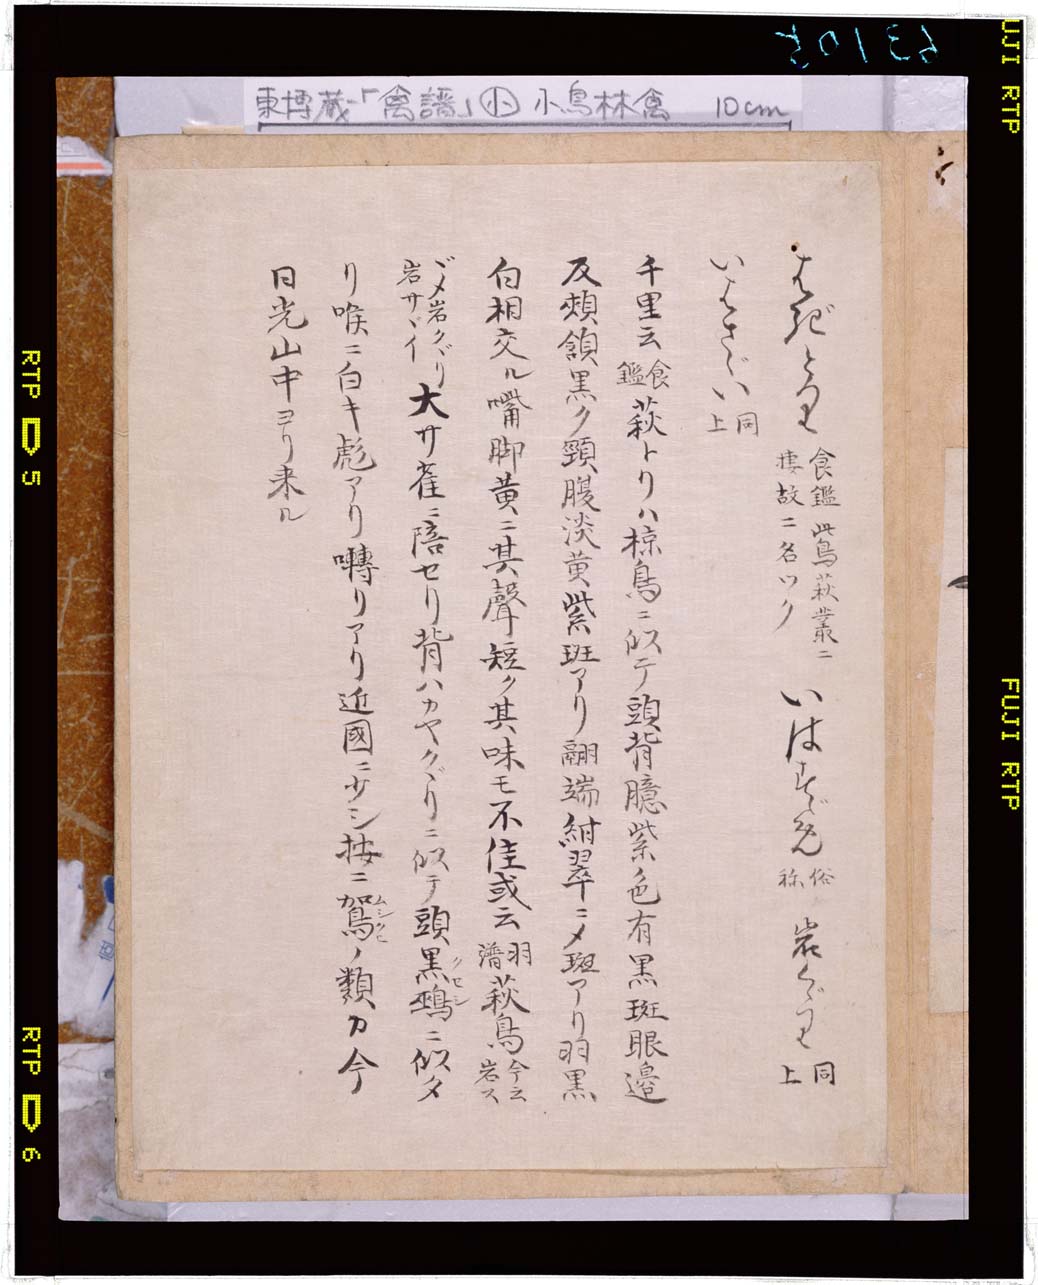 東博蔵-「禽譜」㊉ 小鳥林禽 10cm
はぎとり 食鑑 此鳥萩叢ニ棲故ニ名ツク いはすゞめ 俗称 岩くゞり 同上
いはさゞい 同上
千里云 食鑑 萩トリハ椋鳥ニ似テ頭背臆紫色有黒斑眼邊
及頰頷黒ク頸腹淡黄紫斑アリ翮端紺翠ニメ斑アリ羽黒
白相交ル嘴脚黄ニ其聲短ク其味モ不佳或云 羽譜 萩鳥 今云岩ス
ゞメ岩クゞリ岩サゞイ 大サ雀ニ陪セリ背ハカヤクゞリニ似テ頭黒鵐ニ似タ
リ喉ニ白キ彪アリ囀リアリ近國ニ少シ按ニ鴽ノ類カ今
日光山中ヨリ来ル
クセシ
ムシクヒ
63105
FUJI RTP
FUJI RTP
RTP D 5
RTP D 6